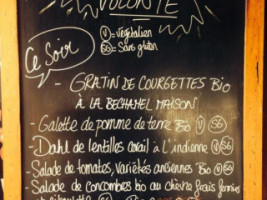 VOLONTÉ
Ⓥ = Végétalien
SG = Sans gluten
Ce Soir
- GRATIN DE COURGETTES BIO
À LA BECHAMEL MAISON
- Galette de pomme de terre Bio Ⓥ SG
- Dahl de lentilles corail à l'indienne Ⓥ SG
Salade de tomates, variétés anciennes Bio Ⓥ
- Salade de concombres bio au chèvre frais fermier